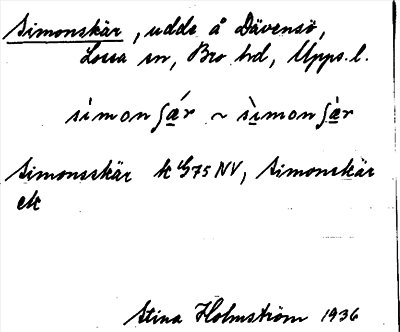 Simonskär, udde å Dävensö,
Lossa sn, Bro hd, Upps. l.
sìmonʃä́r ~ sìmonʃä̀r
Simonsskär k 4/75 NV, Simonskär
ek
Stina Holmström 1936